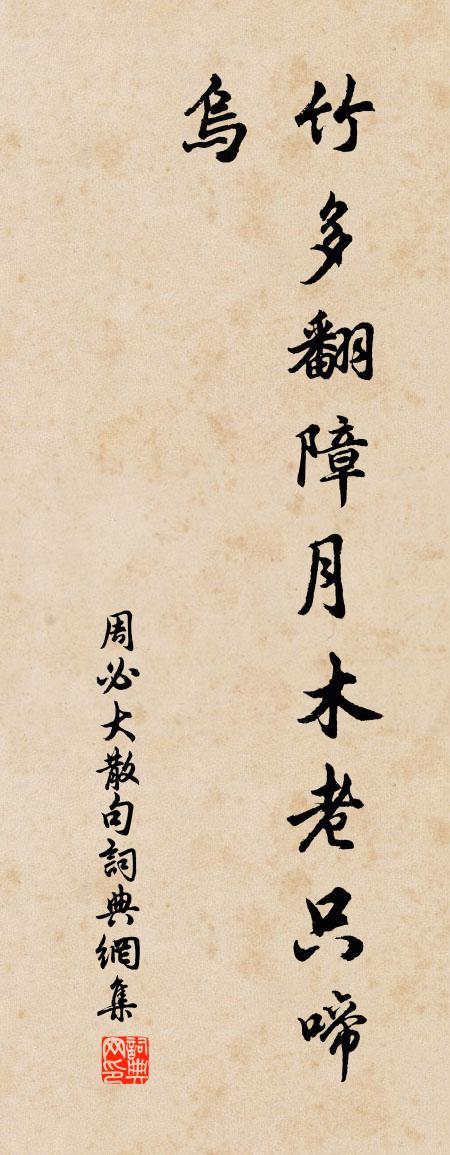 竹多翻障月木老只啼
烏
周必大散句詞典網集
詞典網印